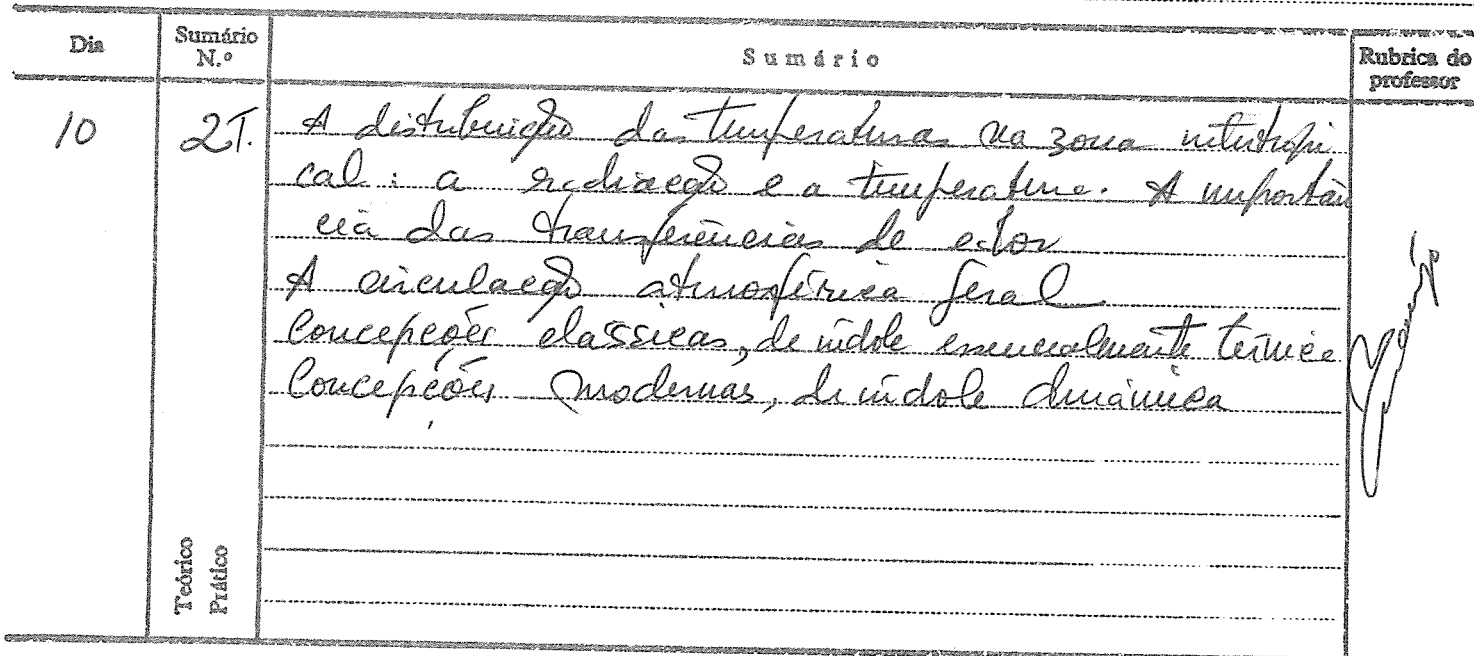 Dia
Sumário N.º
Sumário
Rubrica do professor
10
2T.
A distribuição das temperaturas na zona intertropi
cal: a radiação e a temperatura. A importân
cia das transferências de calor
A circulação atmosférica geral
Concepções clássicas, de índole essencialmente térmica
Concepções modernas, de índole dinâmica
Teórico
Prático